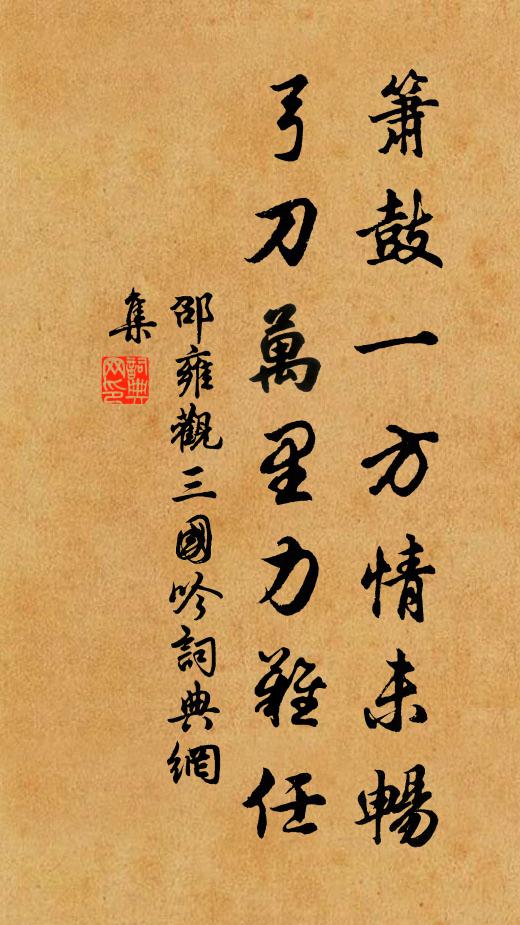 簫鼓一方情未暢
弓刀萬里力難任
邵雍觀三國吟詞典網
集
詞典
网印